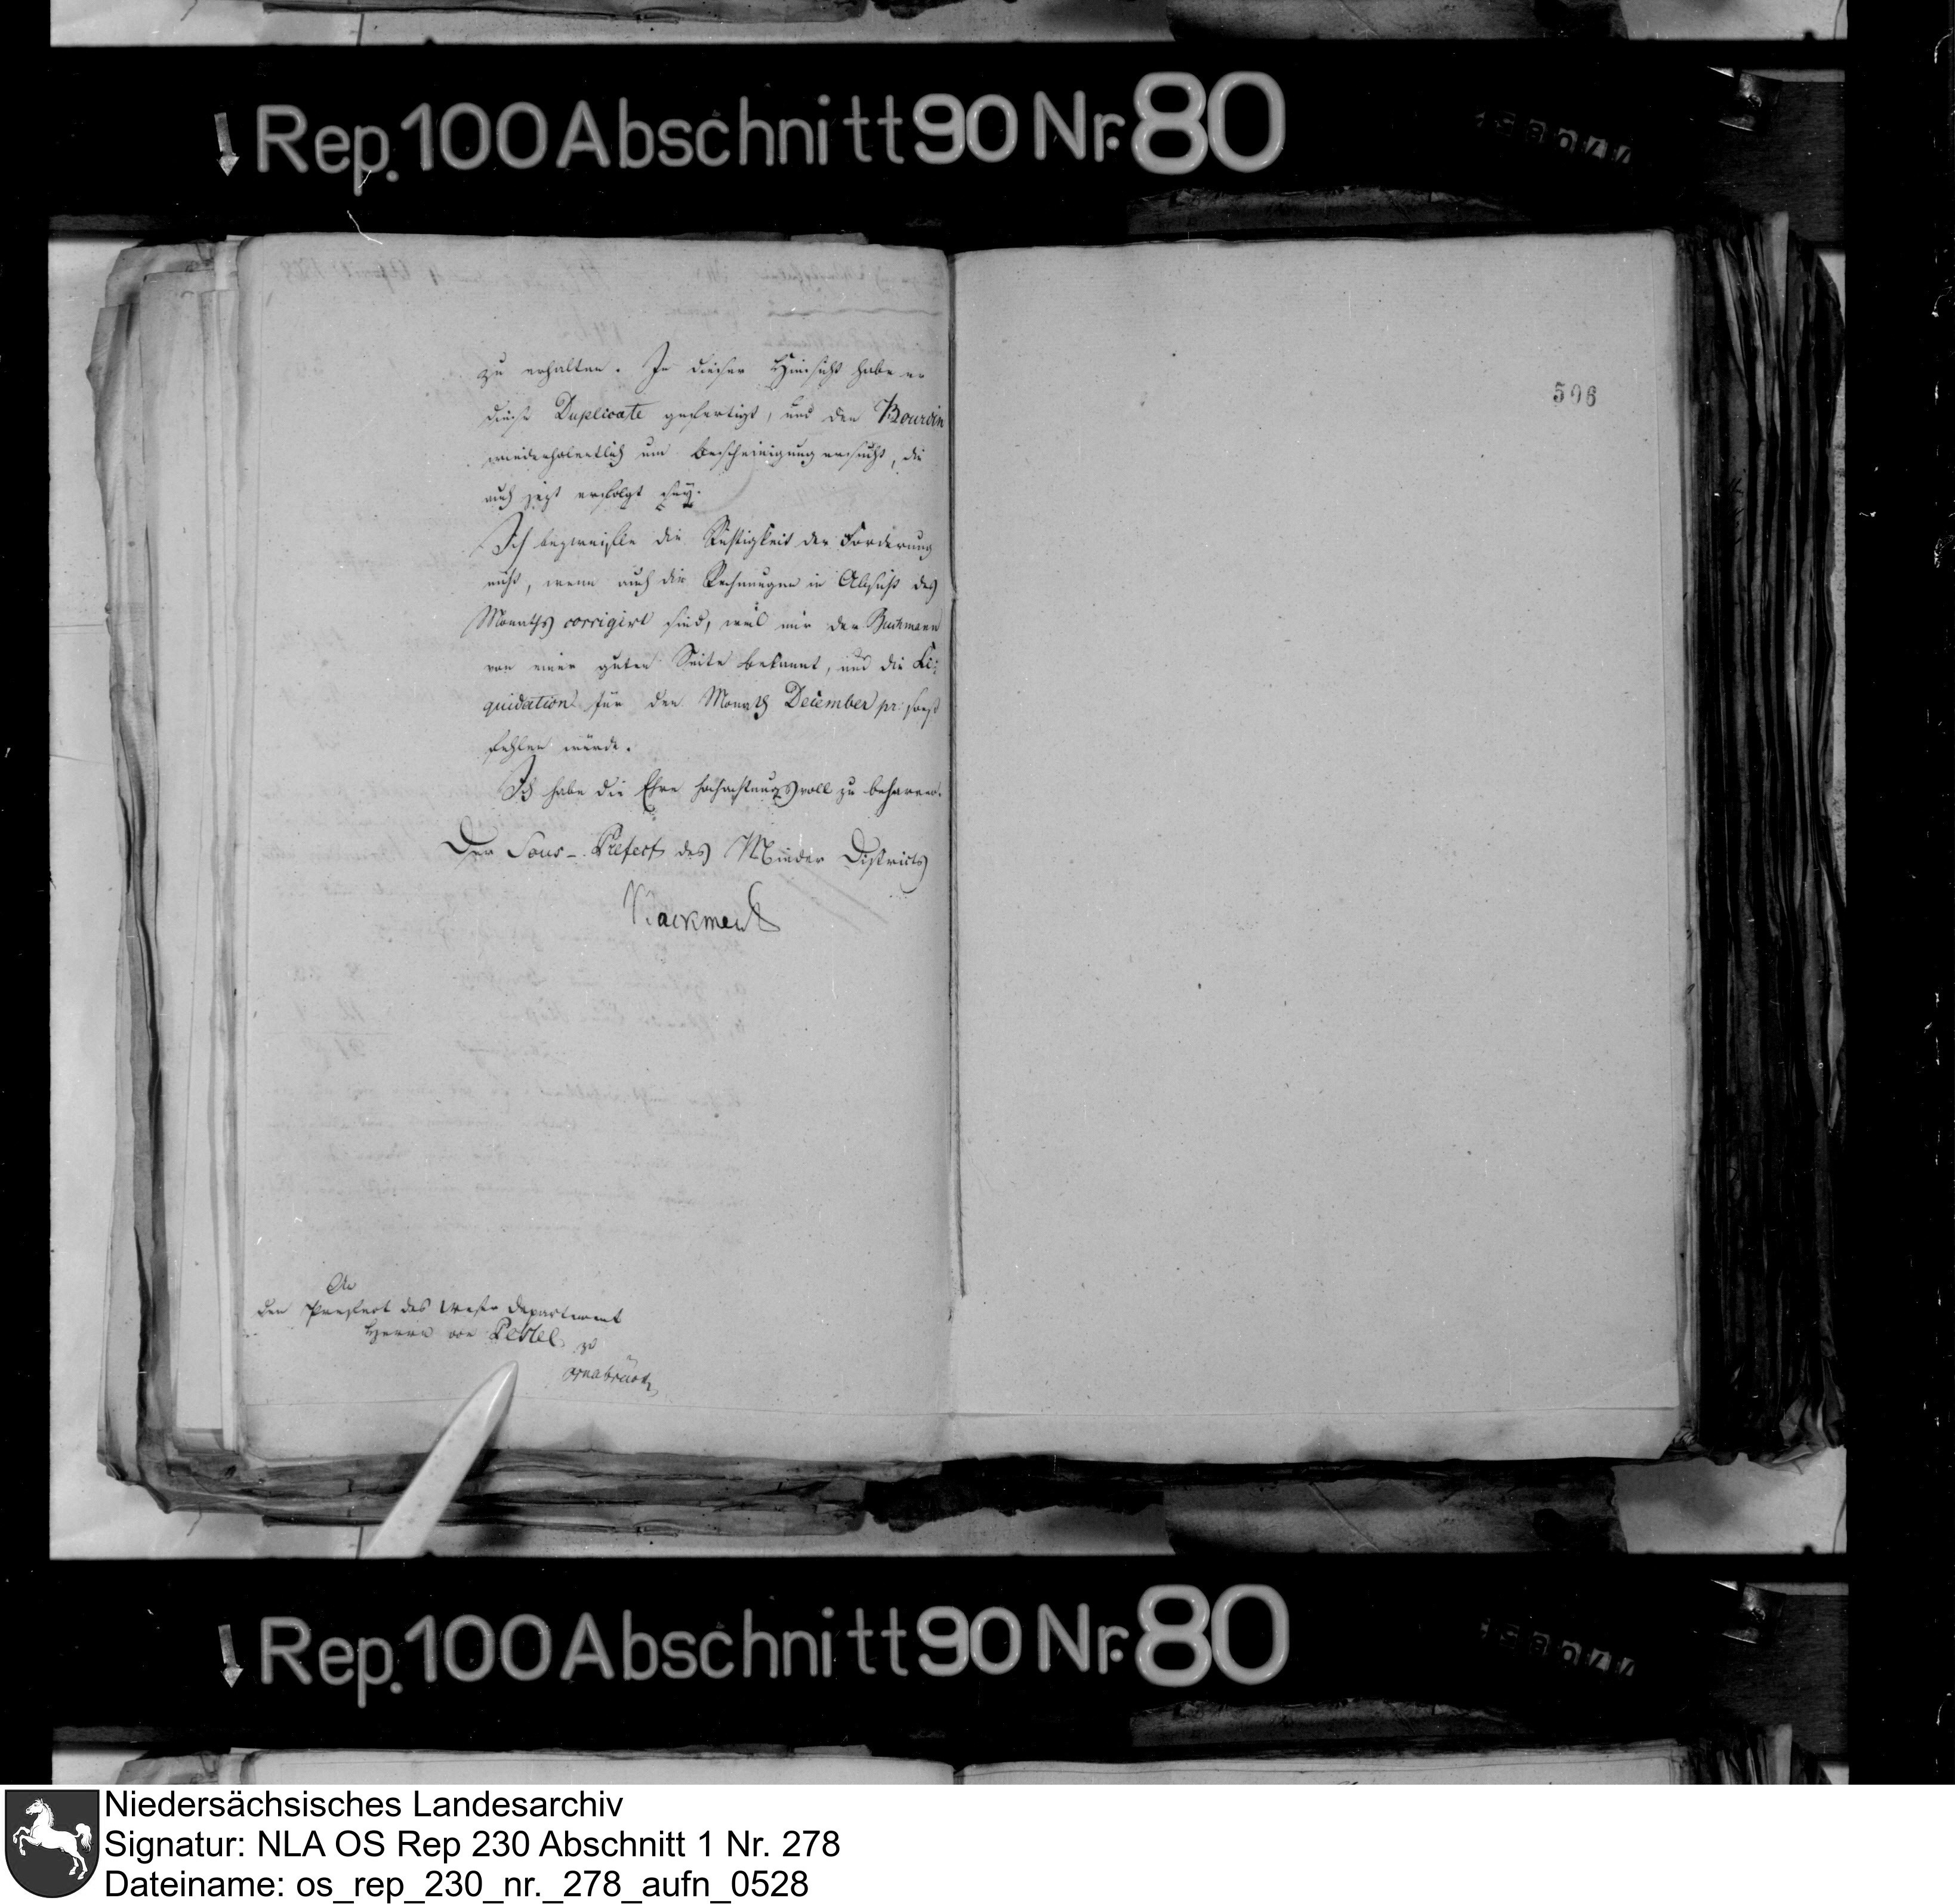 Rep. 100 Abschnitt 90 Nr. 80
506
zu erhalten. In dieser Hinsicht habe er
diese Duplicate gefertigt, und den Bourvin
wiederholentlich um Bescheinigung ersucht, die
auch jezt erfolgt sey.
Ich bezweifle die Richtigkeit der Forderung
nicht, wenn auch die Rechnungen in Absicht des
Monaths corrigirt sind, weil mir der Buckmann
von einer guten Seite bekannt, und die Li-
quidation für den Monath December pr: sonst
fehlen würde.
Ich habe die Ehre hochachtungsvoll zu beharren.
Der Sous-Prefect des Minder Districts
An
den Praefect des Weser Departement
Herrn von Pestel
zu
Osnabrück
Rep. 100 Abschnitt 90 Nr. 80
Niedersächsisches Landesarchiv
Signatur: NLA OS Rep 230 Abschnitt 1 Nr. 278
Dateiname: os_rep_230_nr._278_aufn_0528